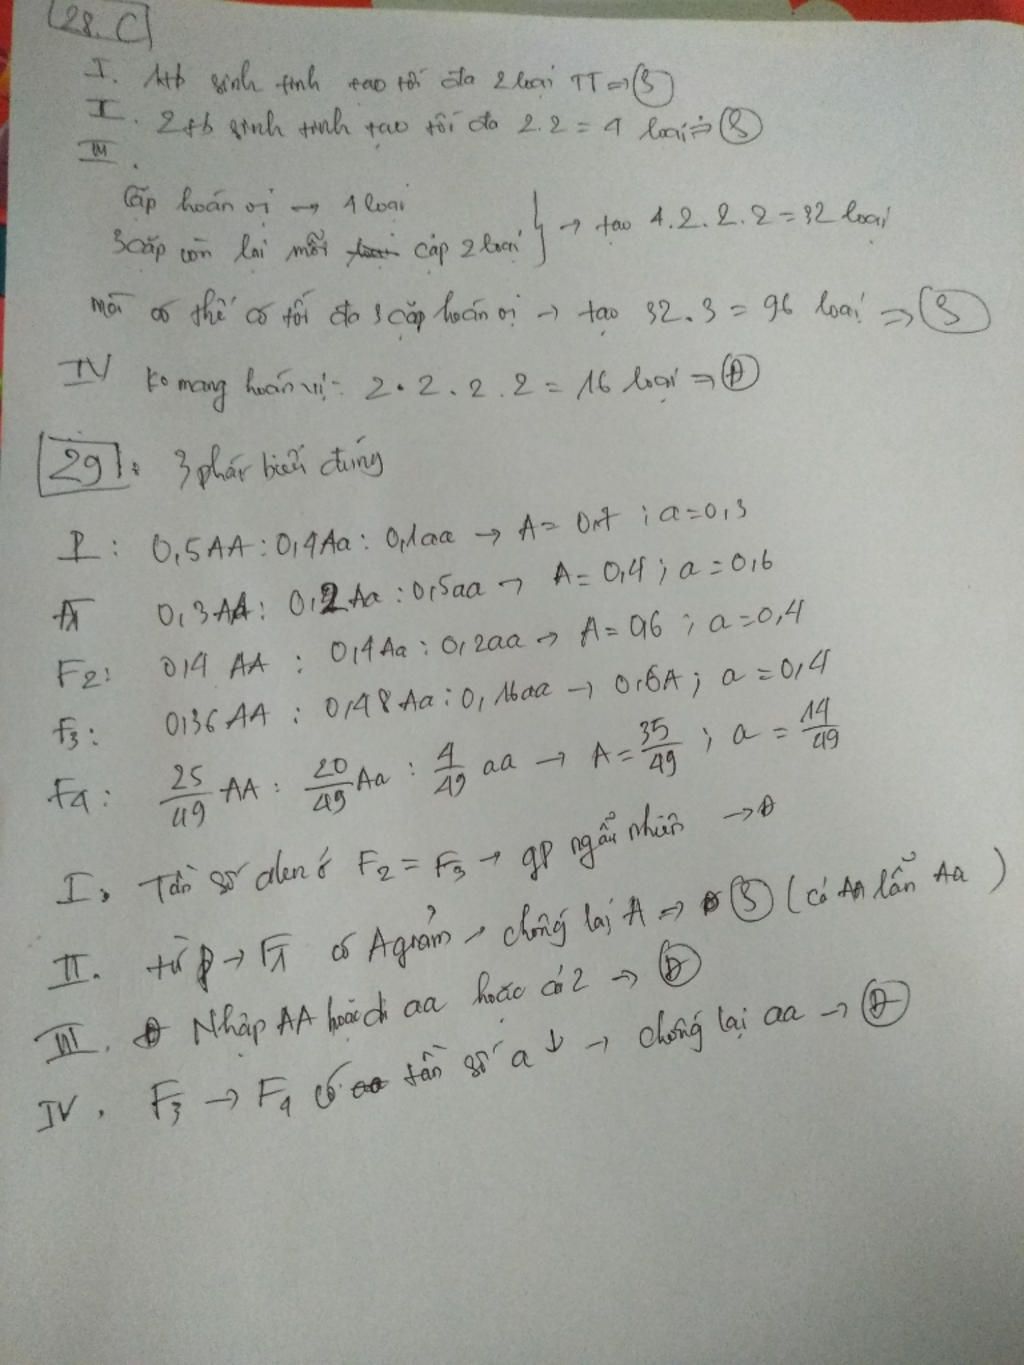 28. C
I. 1tb sinh tinh tạo tối đa 2 loại TT => S
I. 2tb sinh tinh tạo tối đa 2.2 = 4 loại => S
III.
Cặp hoán vị → 4 loại
3 cặp còn lại mỗi cặp 2 loại } → tạo 4.2.2.2 = 32 loại
mà có thể có tối đa 3 cặp hoán vị → tạo 32.3 = 96 loại => S
IV Ko mang hoán vị: 2.2.2.2 = 16 loại => Đ
29: 3 phát biểu đúng
P: 0,5AA : 0,4Aa : 0,1aa → A = 0,7 ; a = 0,3
F1 0,3AA : 0,2Aa : 0,5aa → A = 0,4 ; a = 0,6
F2: 0,4 AA : 0,4Aa : 0,2aa → A = 0,6 ; a = 0,4
F3: 0,36 AA : 0,48 Aa : 0,16aa → 0,6A ; a = 0,4
F4: 25/49 AA : 20/49 Aa : 4/49 aa → A = 35/49 ; a = 14/49
I. Tần số alen ở F2 = F3 → gp ngẫu nhiên → Đ
II. từ P → F1 có A giảm → chống lại A => S (có AA lẫn Aa)
III. Nhập AA hoặc di aa hoặc cả 2 → Đ
IV. F3 → F4 có tần số a ↓ → chống lại aa → Đ